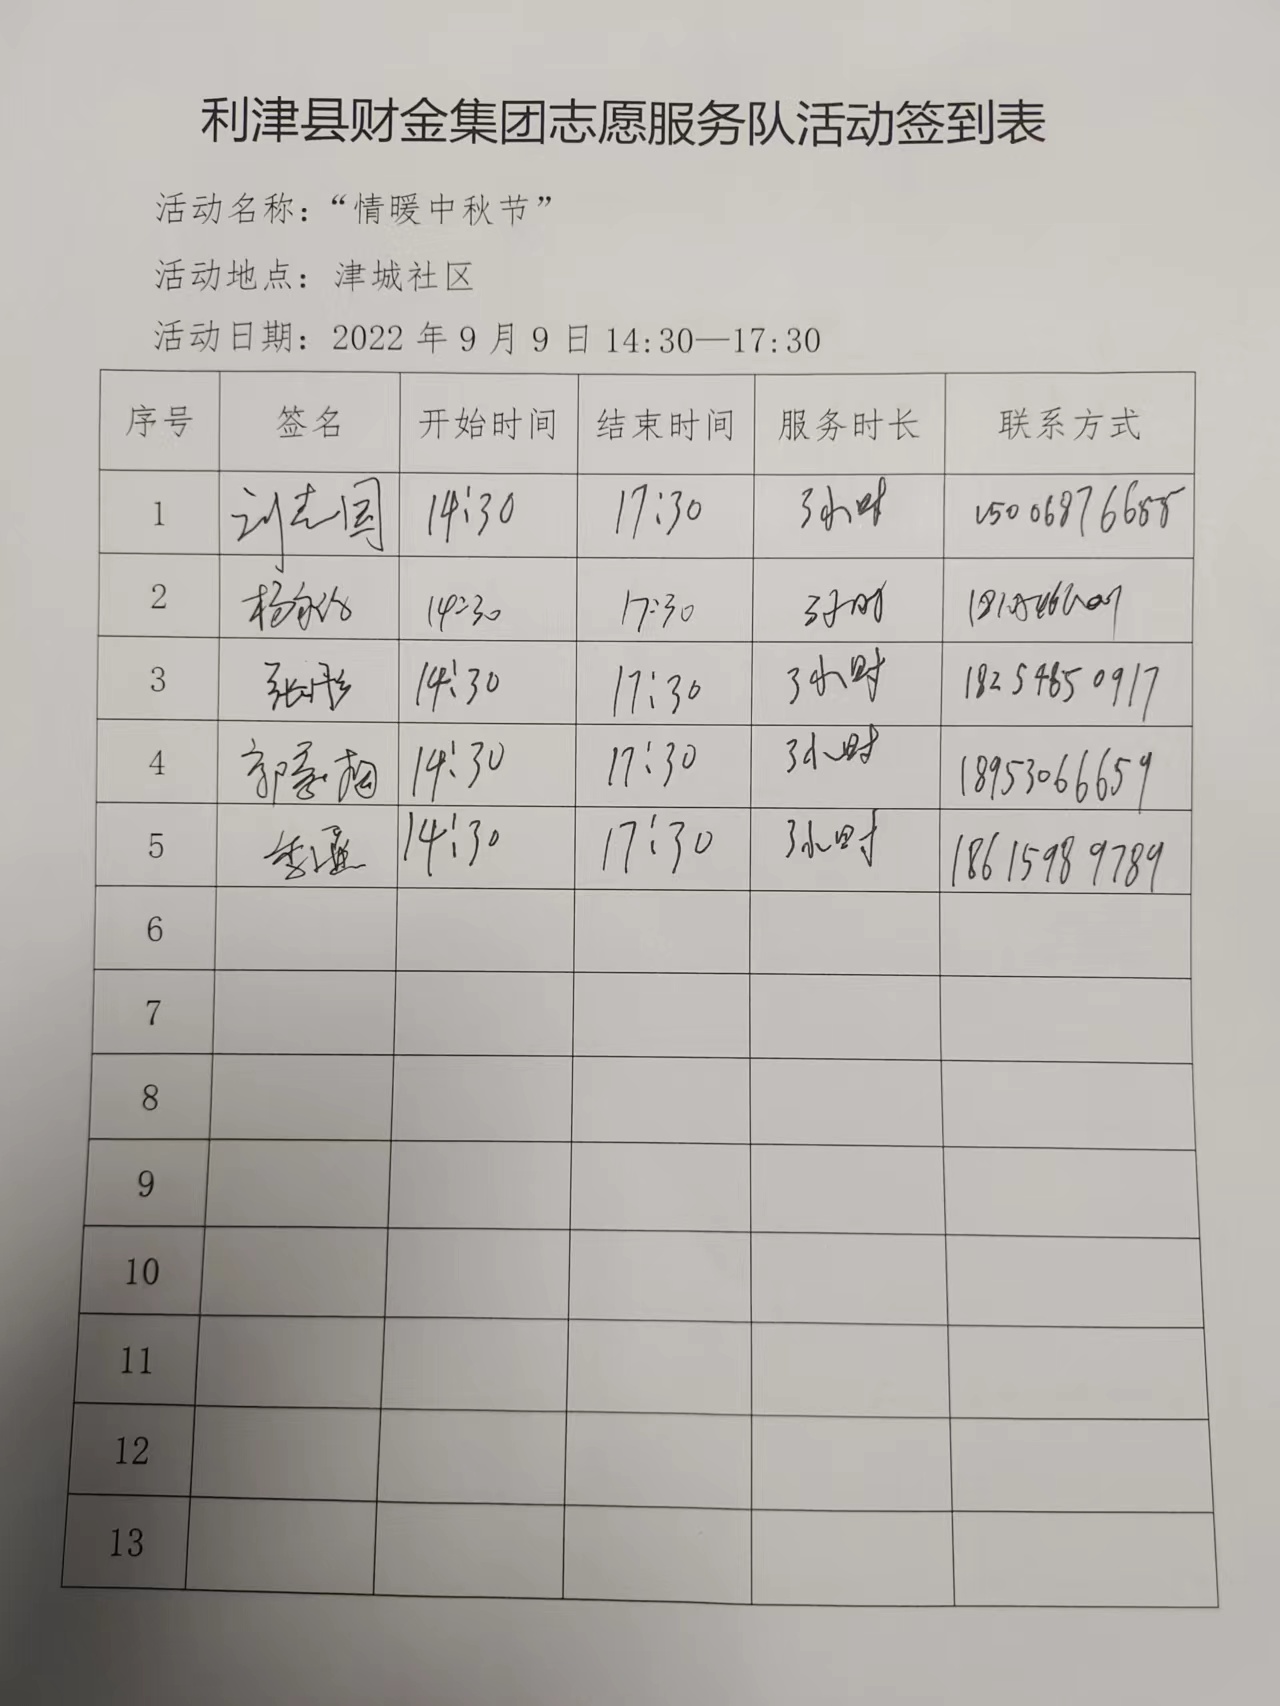 利津县财金集团志愿服务队活动签到表
活动名称：“情暖中秋节”
活动地点：津城社区
活动日期：2022年9月9日14:30—17:30
序号 签名 开始时间 结束时间 服务时长 联系方式
1 刘志国 14:30 17:30 3小时 15006876688
2 14:30 17:30 3小时
3 张彤 14:30 17:30 3小时 18254850917
4 14:30 17:30 3小时 18953066659
5 14:30 17:30 3小时 18615989789
6
7
8
9
10
11
12
13